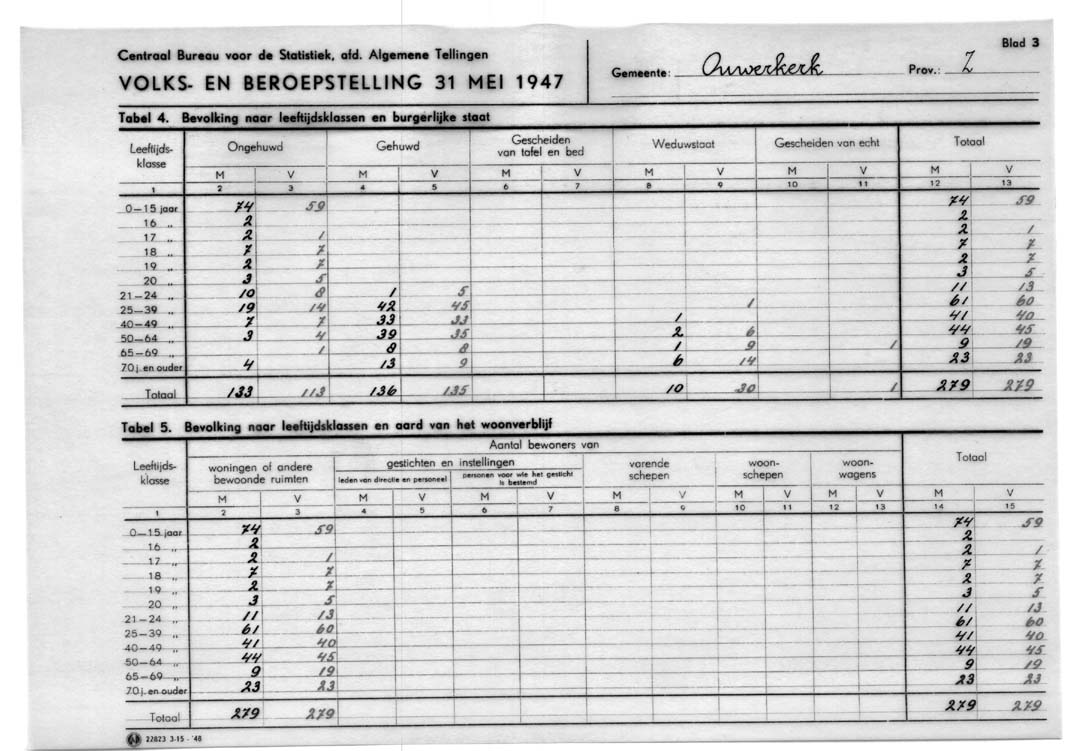 Centraal Bureau voor de Statistiek, afd. Algemene Tellingen
VOLKS- EN BEROEPSTELLING 31 MEI 1947
Gemeente: Ouwerkerk Prov.: Z
Blad 3
Tabel 4. Bevolking naar leeftijdsklassen en burgerlijke staat
Leeftijds-klasse Ongehuwd Gehuwd Gescheiden van tafel en bed Weduwstaat Gescheiden van echt Totaal
M V M V M V M V M V M V
1 2 3 4 5 6 7 8 9 10 11 12 13
0—15 jaar 74 59 74 59
16 „ 2 2
17 „ 2 1 2 1
18 „ 7 7 7 7
19 „ 2 7 2 7
20 „ 3 5 3 5
21—24 „ 10 8 1 5 11 13
25—39 „ 19 14 42 45 1 61 60
40—49 „ 7 7 33 33 1 41 40
50—64 „ 3 4 39 35 2 6 44 45
65—69 „ 1 8 8 1 9 1 9 19
70 j. en ouder 4 13 9 6 14 23 23
Totaal 133 113 136 135 10 30 1 279 279
Tabel 5. Bevolking naar leeftijdsklassen en aard van het woonverblijf
Aantal bewoners van
Leeftijds-klasse woningen of andere bewoonde ruimten gestichten en instellingen varende schepen woon-schepen woon-wagens Totaal
leden van directie en personeel personen voor wie het gesticht is bestemd
M V M V M V M V M V M V M V
1 2 3 4 5 6 7 8 9 10 11 12 13 14 15
0—15 jaar 74 59 74 59
16 „ 2 2
17 „ 2 1 2 1
18 „ 7 7 7 7
19 „ 2 7 2 7
20 „ 3 5 3 5
21—24 „ 11 13 11 13
25—39 „ 61 60 61 60
40—49 „ 41 40 41 40
50—64 „ 44 45 44 45
65—69 „ 9 19 9 19
70 j. en ouder 23 23 23 23
Totaal 279 279 279 279
22823 3-15 - '48